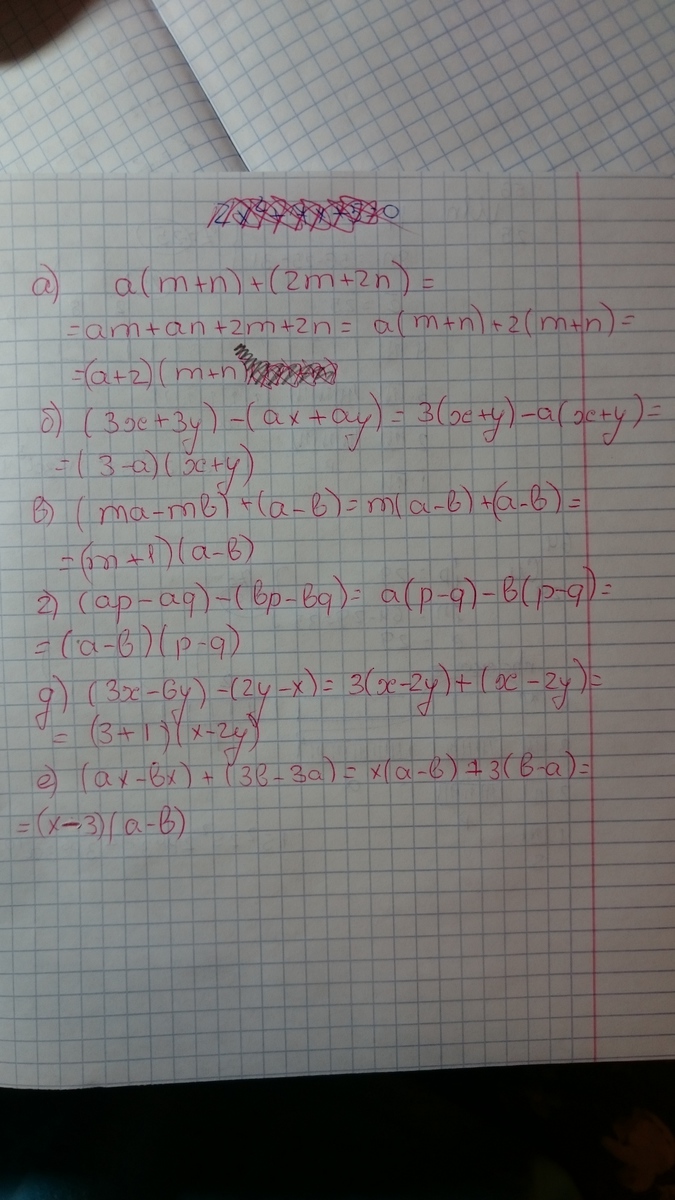 а) a(m+n)+(2m+2n)=
=am+an+2m+2n= a(m+n)+2(m+n)=
=(a+2)(m+n)
б) (3x+3y)-(ax+ay)= 3(x+y)-a(x+y)=
=(3-a)(x+y)
в) (ma-mв)+(a-в)=m(a-в)+(a-в)=
=(m+1)(a-в)
г) (ap-aq)-(вp-вq)= a(p-q)-в(p-q)=
=(a-в)(p-q)
д) (3x-6y)-(2y-x)= 3(x-2y)+(x-2y)=
= (3+1)(x-2y)
е) (ax-вx)+(3в-3a)= x(a-в)+3(в-a)=
=(x-3)(a-в)